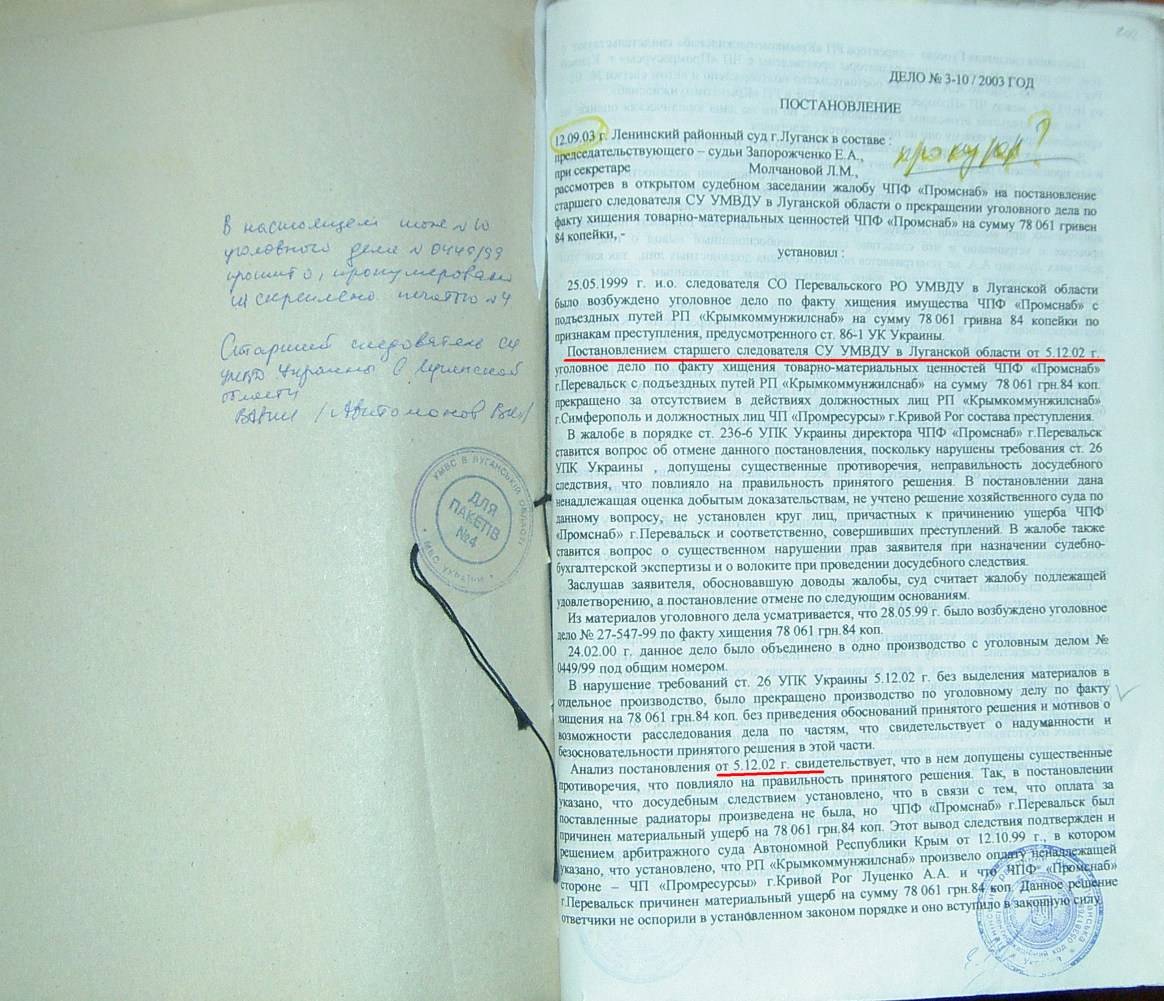 В настоящем томе №10
уголовного дела №0449/99
прошито, пронумеровано
и скреплено печатью №4
Старший следователь СУ
УМВД Украины в Луганской
области
УМВС В ЛУГАНСЬКІЙ ОБЛАСТІ
ДЛЯ
ПАКЕТІВ
№4
МВС УКРАЇНИ
ДЕЛО № 3-10 / 2003 ГОД
ПОСТАНОВЛЕНИЕ
12.09.03 г. Ленинский районный суд г.Луганск в составе :
прокурор?
председательствующего – судьи Запорожченко Е.А.,
при секретаре Молчановой Л.М.,
рассмотрев в открытом судебном заседании жалобу ЧПФ «Промснаб» на постановление
старшего следователя СУ УМВДУ в Луганской области о прекращении уголовного дела по
факту хищения товарно-материальных ценностей ЧПФ «Промснаб» на сумму 78 061 гривен
84 копейки, -
установил :
25.05.1999 г. и.о. следователя СО Перевальского РО УМВДУ в Луганской области
было возбуждено уголовное дело по факту хищения имущества ЧПФ «Промснаб» с
подъездных путей РП «Крымкоммунжилснаб» на сумму 78 061 гривна 84 копейки по
признакам преступления, предусмотренного ст. 86-1 УК Украины.
Постановлением старшего следователя СУ УМВДУ в Луганской области от 5.12.02 г.
уголовное дело по факту хищения товарно-материальных ценностей ЧПФ «Промснаб»
г.Перевальск с подъездных путей РП «Крымкоммунжилснаб» на сумму 78 061 грн.84 коп.
прекращено за отсутствием в действиях должностных лиц РП «Крымкоммунжилснаб»
г.Симферополь и должностных лиц ЧП «Промресурсы» г.Кривой Рог состава преступления.
В жалобе в порядке ст. 236-6 УПК Украины директора ЧПФ «Промснаб» г.Перевальск
ставится вопрос об отмене данного постановления, поскольку нарушены требования ст. 26
УПК Украины , допущены существенные противоречия, неправильность досудебного
следствия, что повлияло на правильность принятого решения. В постановлении дана
ненадлежащая оценка добытым доказательствам, не учтено решение хозяйственного суда по
данному вопросу, не установлен круг лиц, причастных к причинению ущерба ЧПФ
«Промснаб» г.Перевальск и соответственно, совершивших преступлений. В жалобе также
ставится вопрос о существенном нарушении прав заявителя при назначении судебно-
бухгалтерской экспертизы и о волоките при проведении досудебного следствия.
Заслушав заявителя, обосновавшую доводы жалобы, суд считает жалобу подлежащей
удовлетворению, а постановление отмене по следующим основаниям.
Из материалов уголовного дела усматривается, что 28.05.99 г. было возбуждено уголовное
дело № 27-547-99 по факту хищения 78 061 грн.84 коп.
24.02.00 г. данное дело было объединено в одно производство с уголовным делом №
0449/99 под общим номером.
В нарушение требований ст. 26 УПК Украины 5.12.02 г. без выделения материалов в
отдельное производство, было прекращено производство по уголовному делу по факту
хищения на 78 061 грн.84 коп. без приведения обоснований принятого решения и мотивов о
возможности расследования дела по частям, что свидетельствует о надуманности и
безосновательности принятого решения в этой части.
Анализ постановления от 5.12.02 г. свидетельствует, что в нем допущены существенные
противоречия, что повлияло на правильность принятого решения. Так, в постановлении
указано, что досудебным следствием установлено, что в связи с тем, что оплата за
поставленные радиаторы произведена не была, но ЧПФ «Промснаб» г.Перевальск был
причинен материальный ущерб на 78 061 грн.84 коп. Этот вывод следствия подтвержден и
решением арбитражного суда Автономной Республики Крым от 12.10.99 г., в котором
указано, что установлено, что РП «Крымкоммунжилснаб» произвело оплату ненадлежащей
стороне – ЧП «Промресурсы» г.Кривой Рог Луценко А.А. и что ЧПФ «Промснаб»
г.Перевальск причинен материальный ущерб на сумму 78 061 грн.84 коп. Данное решение
ответчики не оспорили в установленном законом порядке и оно вступило в законную силу.